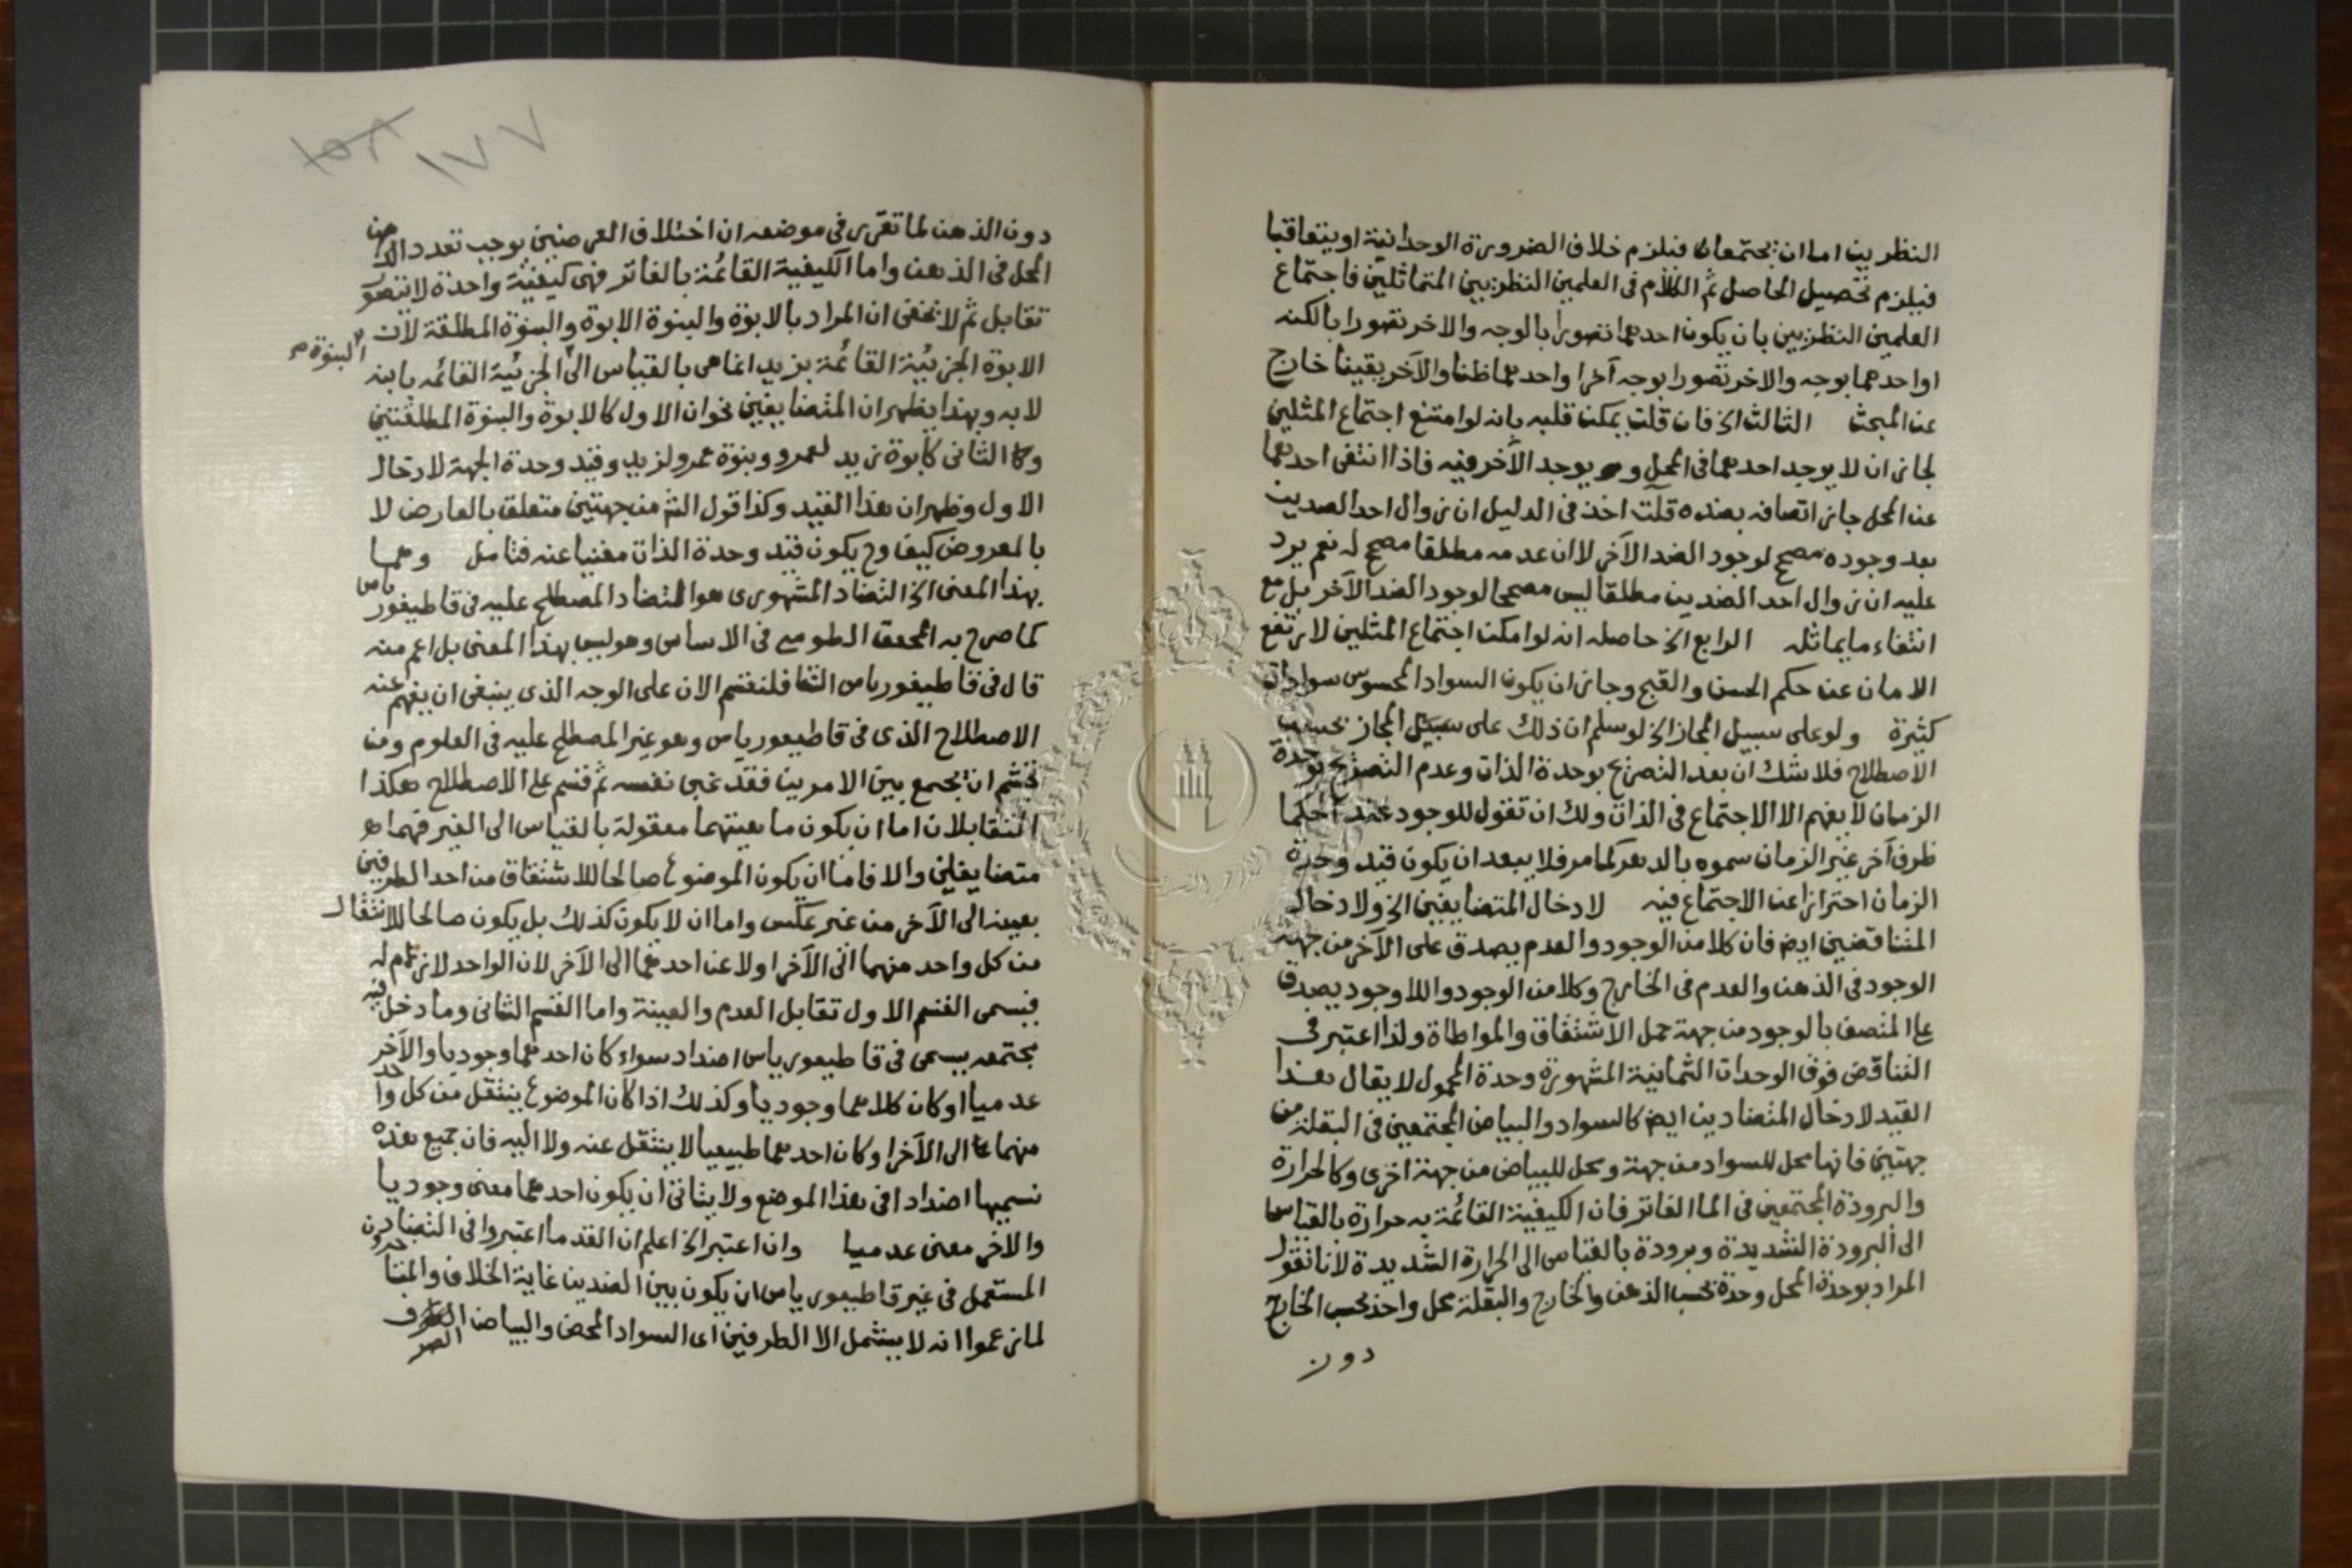 النظريين اما ان يجتمعان فيلزم خلاف الضرورة الوحدانية او يتعاقبا
فيلزم تحصيل الحاصل ثم الكلام في العلمين النظريين المتماثلين فاجتماع
العلمين النظريين بان يكون احدهما تصورا بالوجه والاخر تصورا بالكنه
او احدهما بوجه والاخر تصورا بوجه آخر او احدهما ظنا والآخر يقينا خارج
عن المبحث الثالث الخ فان قلت يمكن قلبه بانه لو امتنع اجتماع المثلين
لجاز ان لا يوجد احدهما في المحل و يوجد الآخر فيه فاذا انتفى احدهما
عن المحل جاز اتصافه بضده قلت اخذ في الدليل ان زوال احد الضدين
بعد وجوده مصحح لوجود الضد الآخر لا ان عدمه مطلقا مصحح له نعم يرد
عليه ان زوال احد الضدين مطلقا ليس مصححا لوجود الضد الآخر بل مع
انتفاء ما يماثله الرابع الخ حاصله انه لو امكن اجتماع المثلين لارتفع
الامان عن حكم الحسن والقبح وجاز ان يكون السواد المحسوس سوادات
كثيرة ولو على سبيل المجاز الخ لو سلم ان ذلك على سبيل المجاز بحسب
الاصطلاح فلا شك ان بعد التصريح بوحدة الذات وعدم التصريح بوحدة
الزمان لا يفهم الا الاجتماع في الذات ولك ان تقول للوجود عند الحكما
ظرف آخر غير الزمان سموه بالدهر كما مر فلا يبعد ان يكون قيد وحدة
الزمان احترازا عن الاجتماع فيه لادخال المتضايفين الخ ولادخال
المتناقضين ايضا فان كلا من الوجود والعدم يصدق على الآخر من جهة
الوجود في الذهن والعدم في الخارج وكلا من الوجود واللاوجود يصدق
على المتصف بالوجود من جهة حمل الاشتقاق والمواطاة ولذا اعتبر في
التناقض فوق الوحدات الثمانية المشهورة وحدة المحمول لا يقال هذا
القيد لادخال المتضادين ايضا كالسواد والبياض المجتمعين في البقلة من
جهتين فانها محل للسواد من جهة ومحل للبياض من جهة اخرى وكالحرارة
والبرودة المجتمعين في الما الفاتر فان الكيفية القائمة به حرارة بالقياس
الى البرودة الشديدة وبرودة بالقياس الى الحرارة الشديدة لانا نقول
المراد بوحدة المحل وحدة بحسب الذهن والخارج والبقلة محل واحد بحسب الخارج
دون
١٧٧
دون الذهن لما تقرر في موضعه ان اختلاف العرضين يوجب تعدد
المحل في الذهن واما الكيفية القائمة بالفاتر فهي كيفية واحدة لا تتصور
تقابل ثم لا يخفى ان المراد بالابوة والبنوة الابوة والبنوة المطلقة لان
الابوة الجزئية القائمة بزيد انما هي بالقياس الى الجزئية القائمه بابنه
البنوة صح
لا به وبهذا يظهر ان المتضايفين نحوان الاول كالابوة والبنوة المطلقتين
والثاني كأبوة زيد لعمرو وبنوة عمرو لزيد وقيد وحدة الجهة لادخال
الاول وظهر ان هذا القيد وكذا قول الش من جهتين متعلق بالعارض لا
بالمعروض كيف وح يكون قيد وحدة الذات مغنيا عنه فتامل وهما
بهذا المعنى الخ التضاد المشهوري هو التضاد المصطلح عليه في قاطيغورياس
كما صرح به المحقق الطوسي في الاساس وهو ليس بهذا المعنى بل اعم منه
قال في قاطيغورياس الشفا فلنقسم الان على الوجه الذي ينبغي ان يفهم عنه
الاصطلاح الذي في قاطيغورياس وهو غير المصطلح عليه في العلوم ومن
تجشم ان يجمع بين الامرين فقد غبى نفسه ثم قسم على الاصطلاح هكذا
المتقابلان اما ان يكون ماهيتهما معقولة بالقياس الى الغير فهما
متضايفين والا فاما ان يكون الموضوع صالحا للاشتقاق من احد الطرفين
بعينه الى الآخر من غير عكس واما ان لا يكون كذلك بل يكون صالحا للانتقال
من كل واحد منهما الى الآخر او لا عن احدهما الى الآخر لان الواحد لازم له
فيسمى القسم الاول تقابل العدم والقينة واما القسم الثاني وما دخل فيه
مجتمعه يسمى في قاطيغورياس اضداد سواء كان احدهما وجوديا والآخر
عدميا او كان كلاهما وجوديا وكذلك اذا كان الموضوع ينتقل من كل واحد
منهما الى الآخر او كان احدهما طبيعيا لا ينتقل عنه ولا اليه فان جميع هذه
نسميها اضدادا في هذا الموضع ولا يتاتى ان يكون احدهما معنى وجوديا
والاخر معنى عدميا وان اعتبر الخ اعلم ان القدما اعتبروا في التضاد
المستعمل في غير قاطيغورياس ان يكون بين الضدين غاية الخلاف والمتاخرون
لما زعموا انه لا يشمل الا الطرفين اى السواد المحض والبياض الصرف